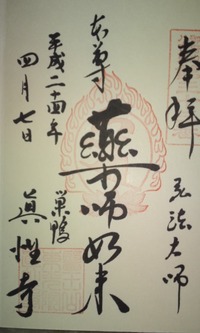 奉拝
弘法大師
本尊
薬師如来
巣鴨
眞性寺
平成二十四年
四月七日